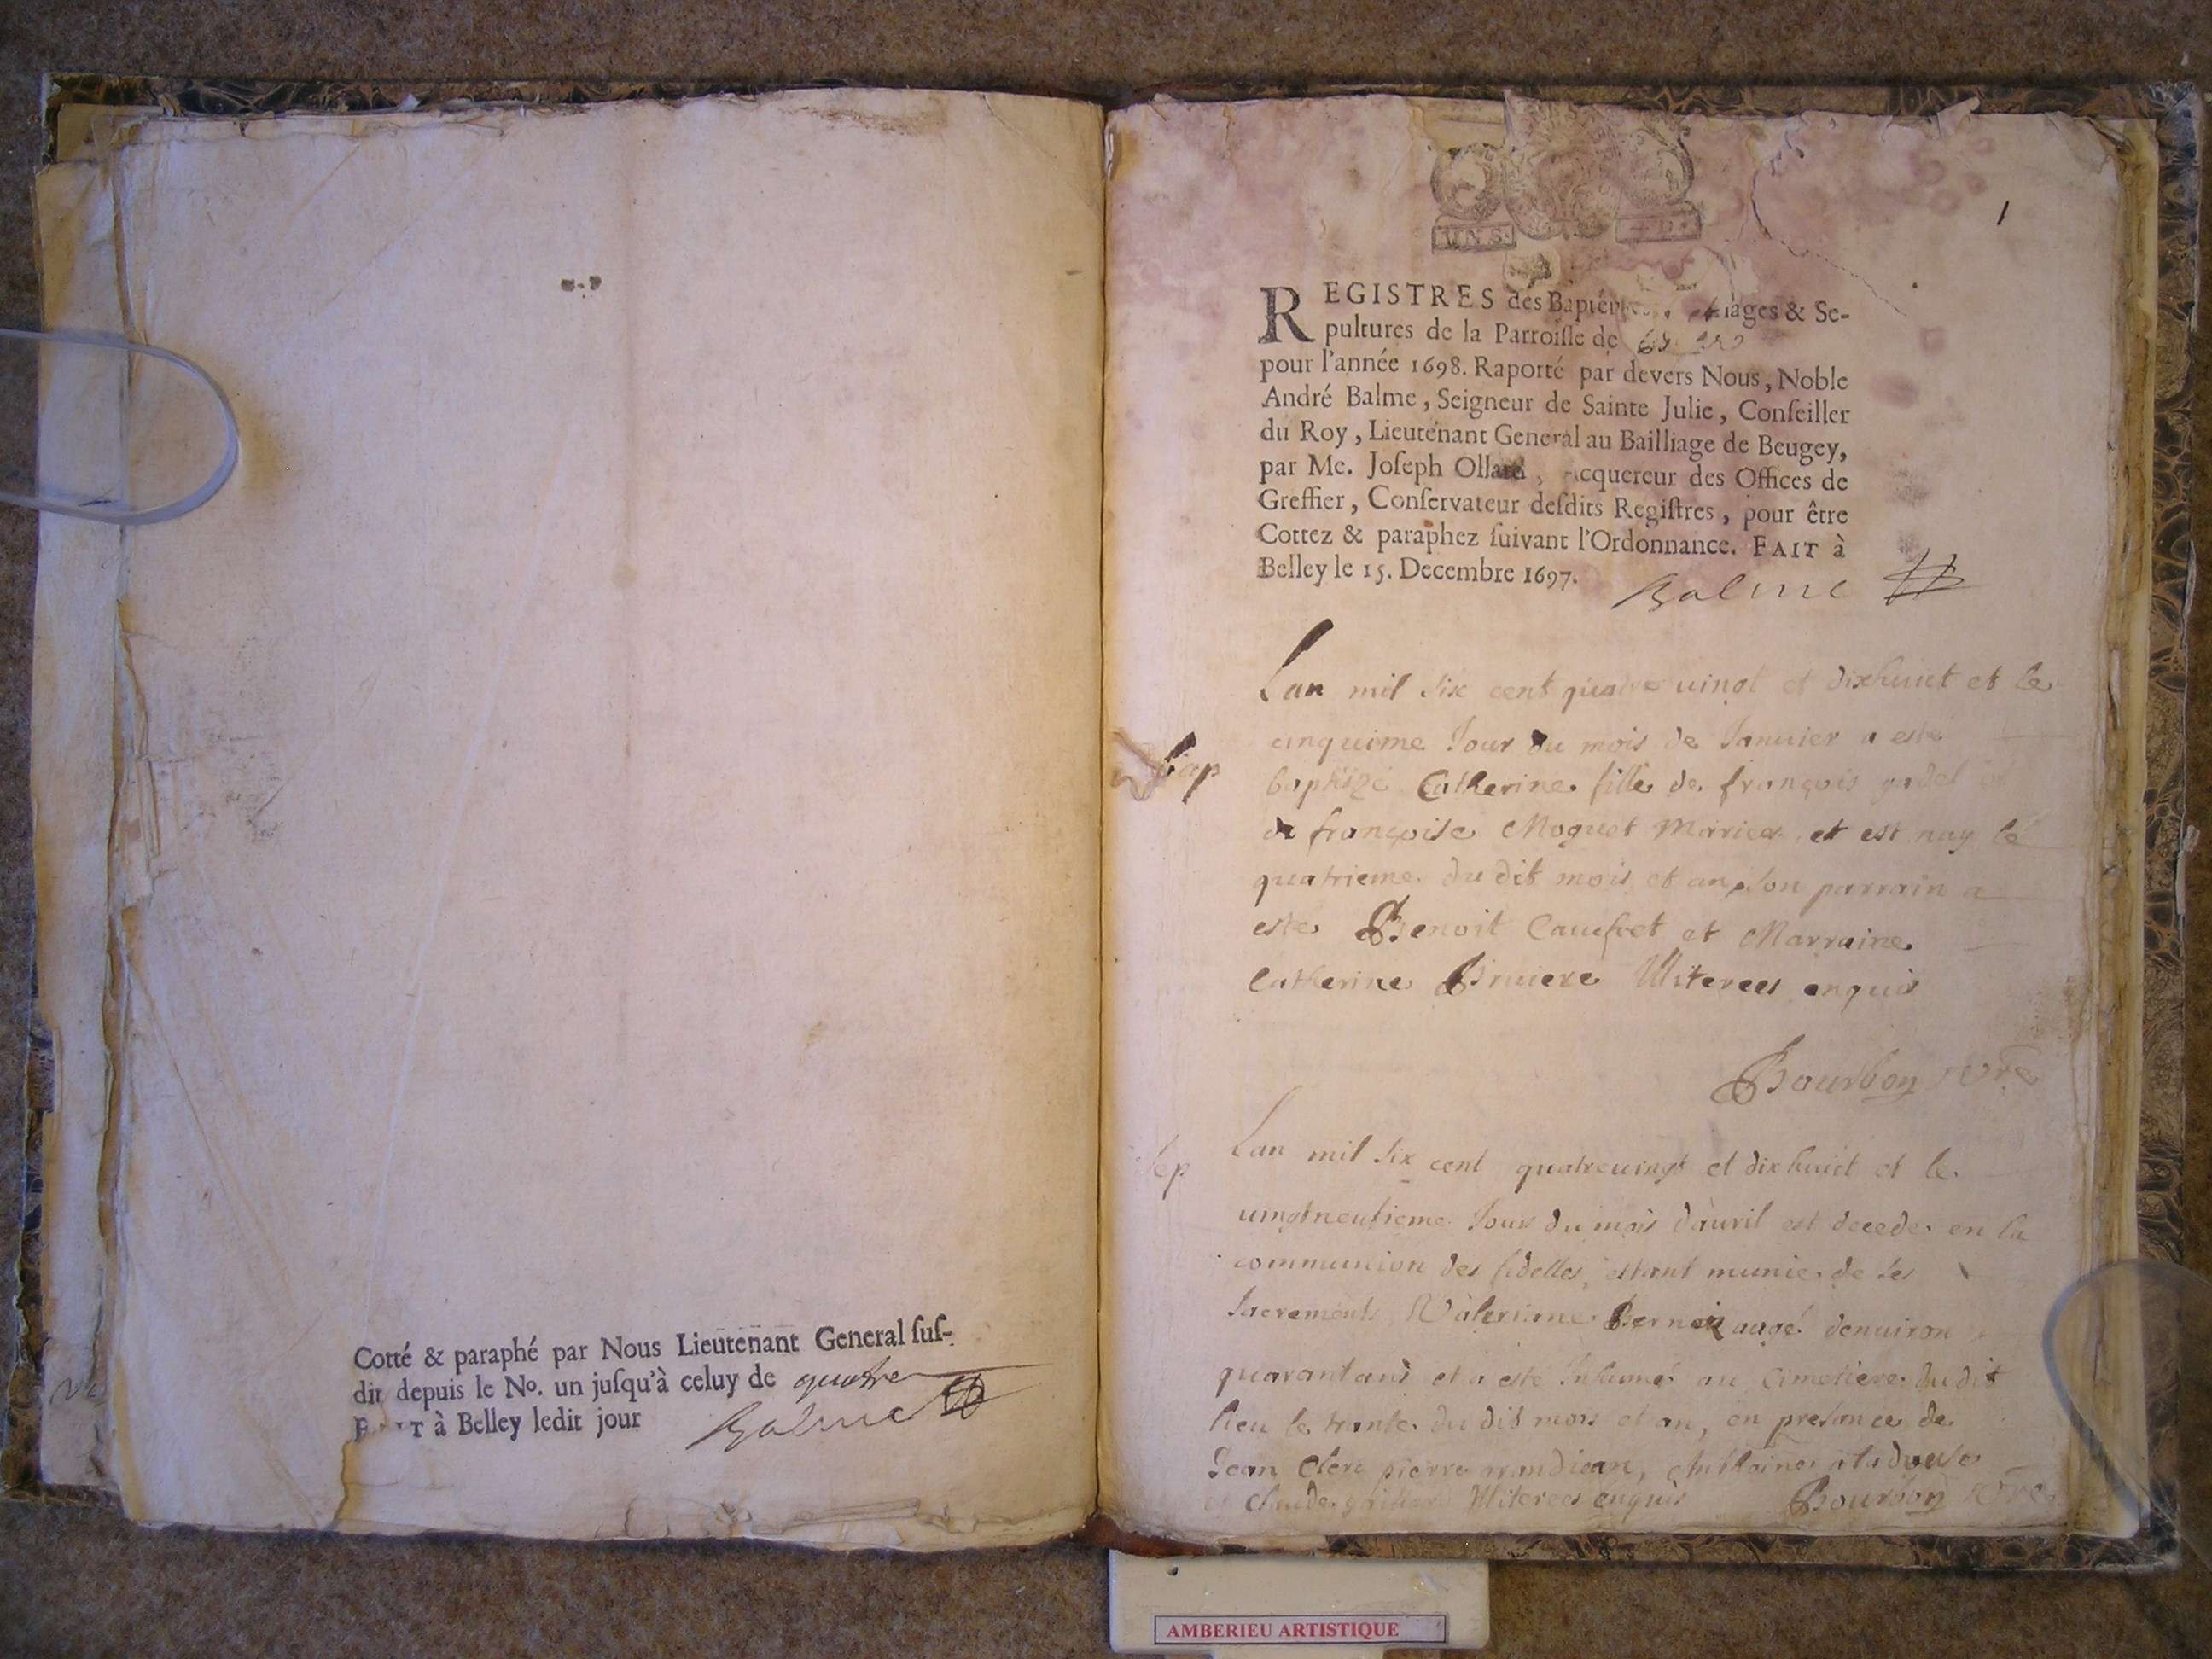 Cotté & paraphé par Nous Lieutenant General suſ-
dit depuis le No. un juſqu'à celuy de quatre
à Belley ledit jour
Balme
1
REGISTRES des & Se-
pultures de la Parroiſſe de
pour l'année 1698. Raporté par devers Nous, Noble
André Balme, Seigneur de Sainte Julie, Conſeiller
du Roy, Lieutenant General au Bailliage de Beugey,
par Me. Joſeph Ollard, Acquereur des Offices de
Greffier, Conſervateur deſdits Regiſtres, pour être
Cottez & paraphez ſuivant l'Ordonnance. FAIT à
Belley le 15. Decembre 1697.
Balme
Lan mil six cent quatre uingt et dixhuict et le
cinquime Jour du mois de Januier a este
bap
baptizé Catherine fille de françois gadel et
de françoise Moguet Maries et est nay le
quatrieme du dit mois et an son parrain a
este Benoit et Marraine
Catherine Bruiere Illiterees enquis
Bourbon
Lan mil six cent quatreuingt et dixhuict et le
Sep
uingtneufieme Jour du mois dauril est decede en la
communion des fidelles, estant munie de ses
sacrements, Valerienne aagé denuiron
quarantans et a esté Inhumé au Cimetiere du dit
lieu le trante du dit mois et an, en presance de
Jean Clerc pierre grandiean,
et Claude Illiterees enquis Bourbon
AMBERIEU ARTISTIQUE